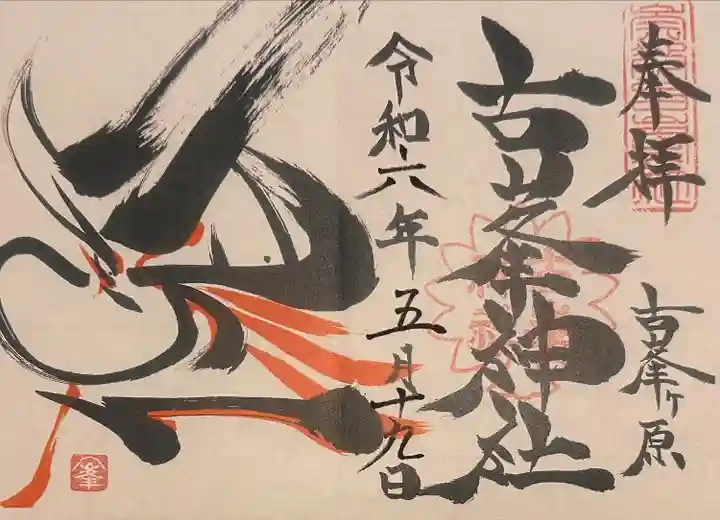 奉拝
古峯ヶ原
古峯神社
令和六年五月十九日
峯